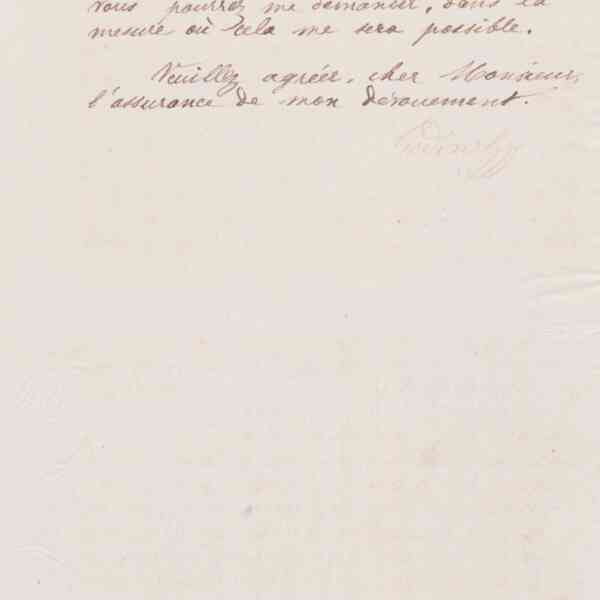 vous pourrez me demander, dans la
mesure où cela me sera possible.
Veuillez agréer, cher Monsieur,
l'assurance de mon dévouement.